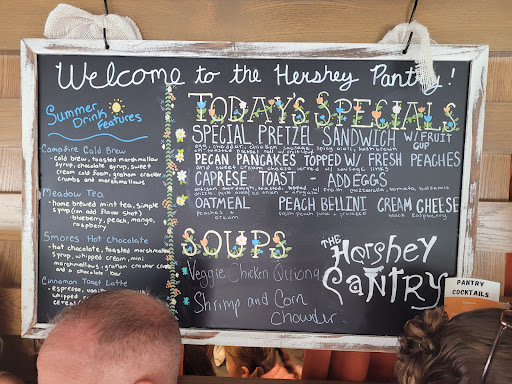 Welcome to the Hershey Pantry!
Summer
Drink Features
Campfire Cold Brew
- cold brew, toasted marshmallow
syrup, chocolate syrup, sweet
cream cold foam, graham cracker
crumbs and marshmallows
Meadow Tea
- home brewed mint tea, simple
syrup (or add flavor shot)
blueberry, peach, mango,
raspberry
S'mores Hot Chocolate
- hot chocolate, toasted marshmallow
syrup, whipped cream, mini
marshmallows, graham cracker crumbs
and a chocolate bar
Cinnamon Toast Latte
- espresso,
whipped
cereal
TODAY'S SPECIALS
SPECIAL PRETZEL SANDWICH W/ FRUIT
CUP
PECAN PANCAKES TOPPED W/ FRESH PEACHES
and sweet cream cheese served w/ sausage links
CAPRESE TOAST - ADD EGGS
OATMEAL PEACH BELLINI CREAM CHEESE
peaches +
cream
black raspberry
SOUPS
Veggie Chicken Quinoa
Shrimp and Corn
Chowder
THE
Hershey
PANTRY
PANTRY
COCKTAILS